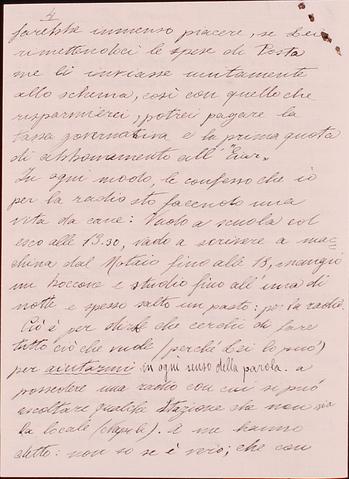 4
farebbe immenso piacere, se Lei
rimettendoci le spese di Posta
me li inviasse unitamente
allo schema, così con quello che
risparmierei, potrei pagare la
tassa governativa e la prima quota
di abbonamento all' "Eiar".
In ogni modo, le confesso che io
per la radio sto facendo una
vita da cane: Vado a scuola ed
esco alle 13.30, vado a scrivere a mac=
china dal Notaio fino alle 18, mangio
un boccone e studio fino all'una di
notte e spesso salto un pasto: per la radio.
Ciò è per dirle che cerchi di fare
tutto ciò che vuole (perché Lei lo può)
per aiutarmi in ogni senso della parola. a
possedere una radio con cui si può
ascoltare qualche stazione che non sia
la locale (Napoli). A me hanno
detto: non so se è vero; che con